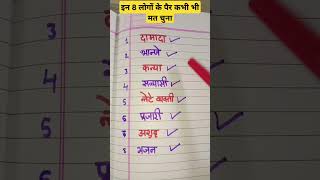 इन 8 लोगों के पैर कभी भी
मत चुना
1 दामादा ✓
2 भान्जे ✓
3 कन्या ✓
4 सन्यासी ✓
5 लेटे व्यक्ती ✓
6 पुजारी ✓
7 अशुद्ध ✓
8 भजन ✓